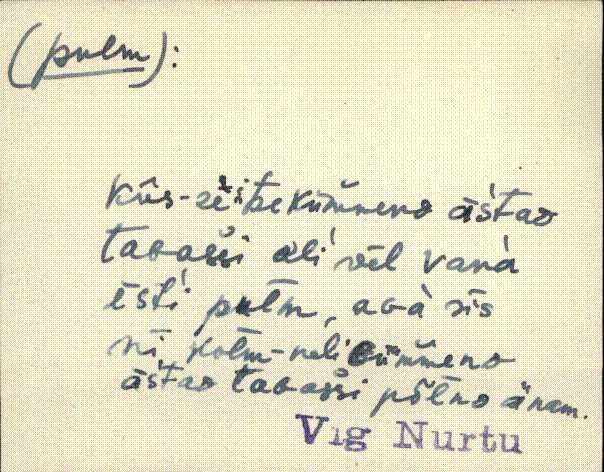 (pulm):
kūs-seitsekümmend āstao
tagassi oli vēl vana
ēsti pulm, aga sīs
nī kolm-nelikümmend
āstao tagassi põlno änam.
Vig Nurtu